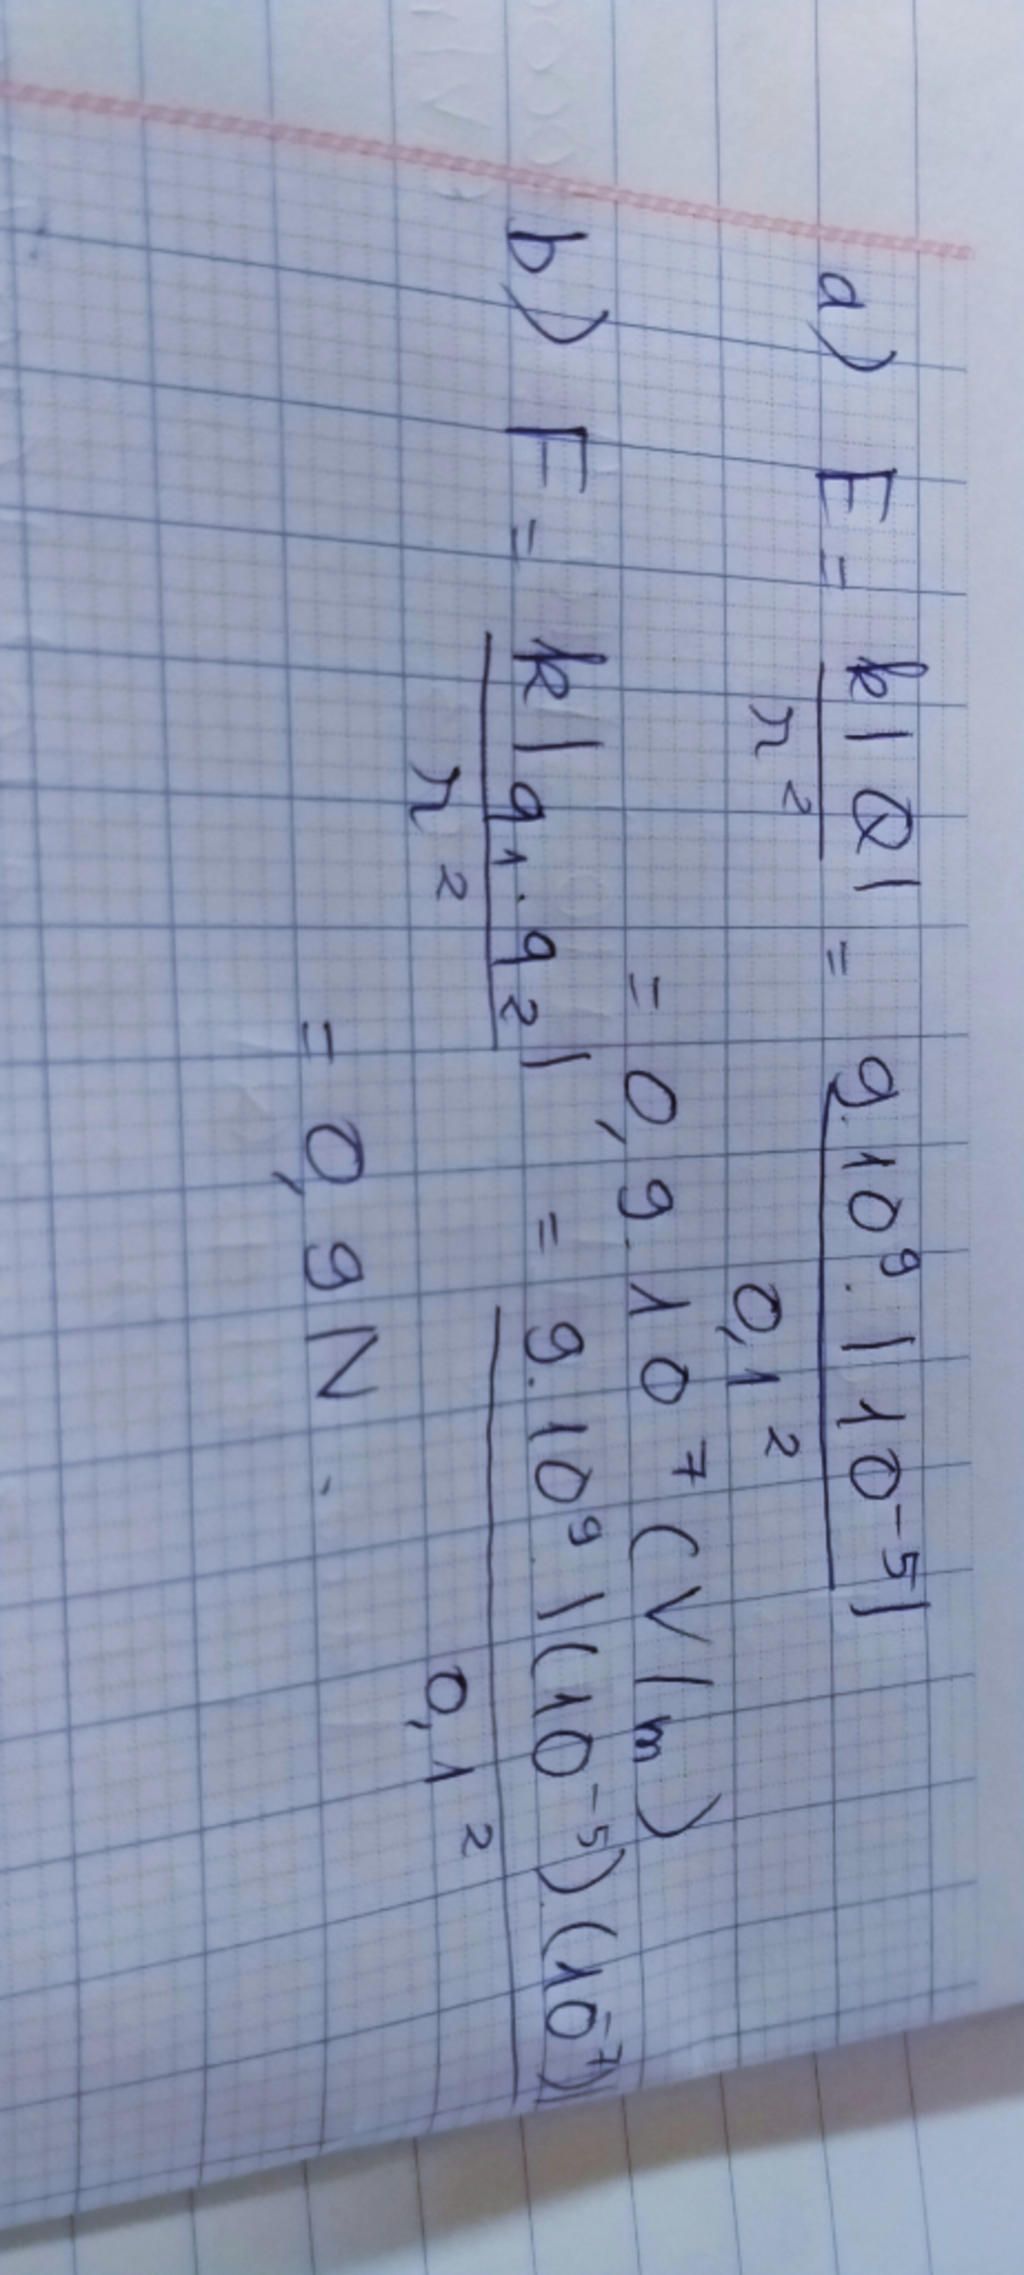 a) E = k|Q| / r² = 9.10⁹.|10⁻⁵| / 0,1²
= 0,9.10⁷ (V/m)
b) F = k|q₁.q₂| / r² = 9.10⁹.|(10⁻⁵)(10⁻⁷)| / 0,1²
= 0,9N.